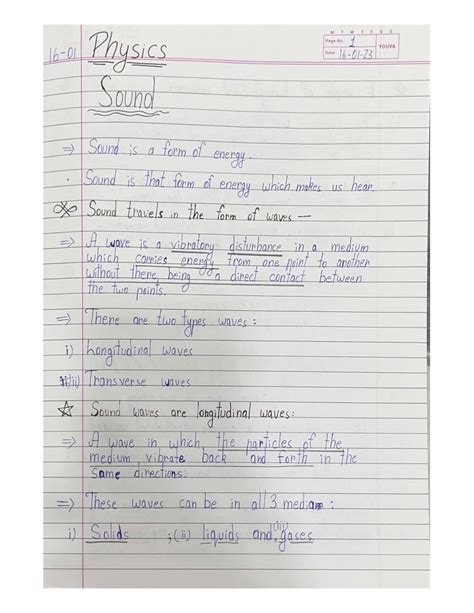 M T W T F S S
Page No.: 1
YOUVA
Date: 16-01-23
16-01 Physics
Sound
⇒ Sound is a form of energy.
· Sound is that form of energy which makes us hear.
Sound travels in the form of waves —
⇒ A wave is a vibratory disturbance in a medium
which carries energy from one point to another
without there, being a direct contact between
the two points.
⇒ There are two types waves :
i) Longitudinal waves
ii) Transverse waves
☆ Sound waves are longitudinal waves:
⇒ A wave in which, the particles of the
medium vibrate back and forth in the
same directions.
⇒ These waves can be in all 3 media :
i) Solids ;(ii) liquids and (iii) gases.